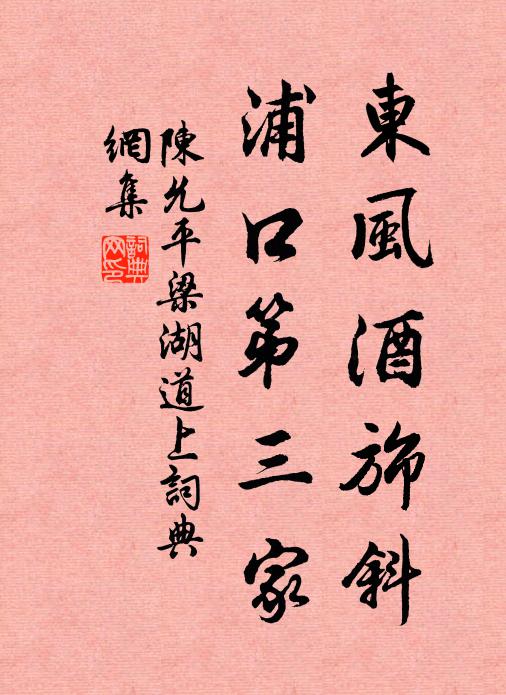 東風酒斾斜
浦口第三家
陳允平梁湖道上詞典
網集
詞典网印